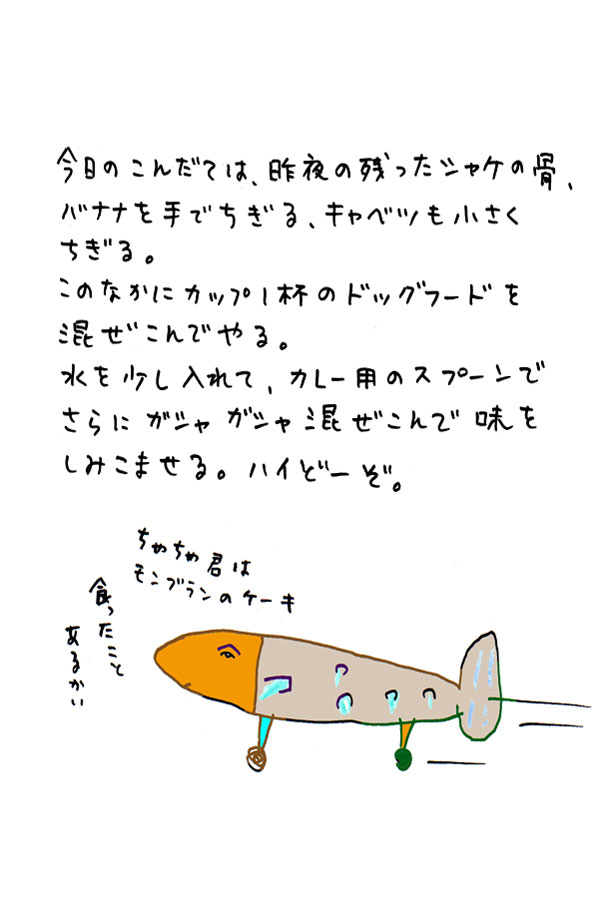 今日のこんだては、昨夜の残ったシャケの骨、
バナナを手でちぎる、キャベツも小さく
ちぎる。
このなかにカップ1杯のドッグフードを
混ぜこんでやる。
水を少し入れて、カレー用のスプーンで
さらにガシャガシャ混ぜこんで味を
しみこませる。ハイどーぞ。
ちゃちゃ君は
モンブランのケーキ
食ったこと
あるかい